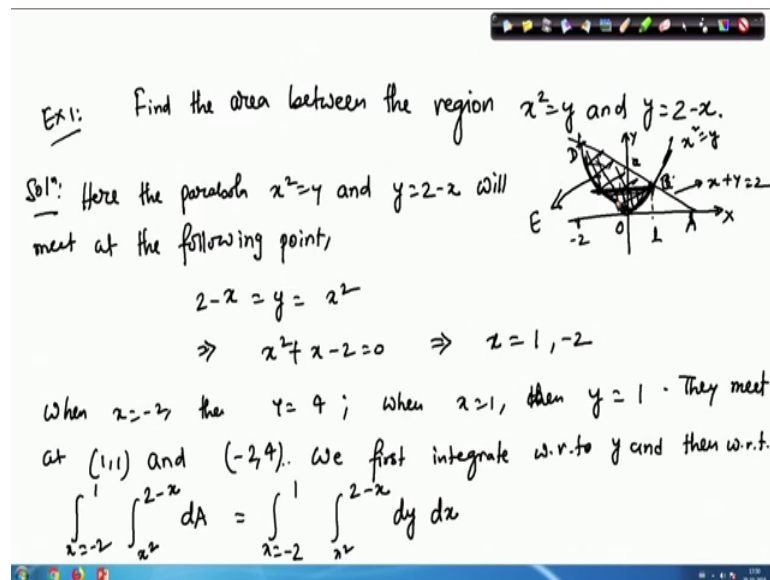 Ex1: Find the area between the region x²=y and y=2-x.
Solⁿ: Here the parabola x²=y and y=2-x will
meet at the following point,
2-x = y = x²
⇒ x²+x-2=0 ⇒ x=1,-2
When x=-2, then y=4; when x=1, then y=1. They meet
at (1,1) and (-2,4). We first integrate w.r.to y and then w.r.t.
∫_{x=-2}^{1} ∫_{x²}^{2-x} dA = ∫_{x=-2}^{1} ∫_{x²}^{2-x} dy dx
Y
x²=y
D
B
x+y=2
E
-2
O
1
A
X